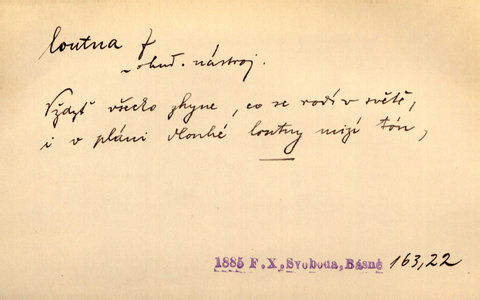 loutna f
~ hud. nástroj.
Vždyť všecko zhyne, co se rodí v světě,
i v pláni dlouhé loutny mizí tón,
1885 F.X.Svoboda,Básně 163,22